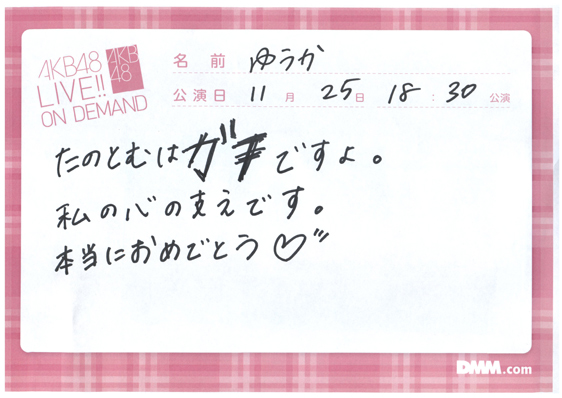 AKB48
LIVE!!
ON DEMAND
AKB
48
名前 ゆうか
公演日 11月 25日 18:30 公演
たのとむはガチですよ。
私の心の支えです。
本当におめでとう♡"
DMM.com